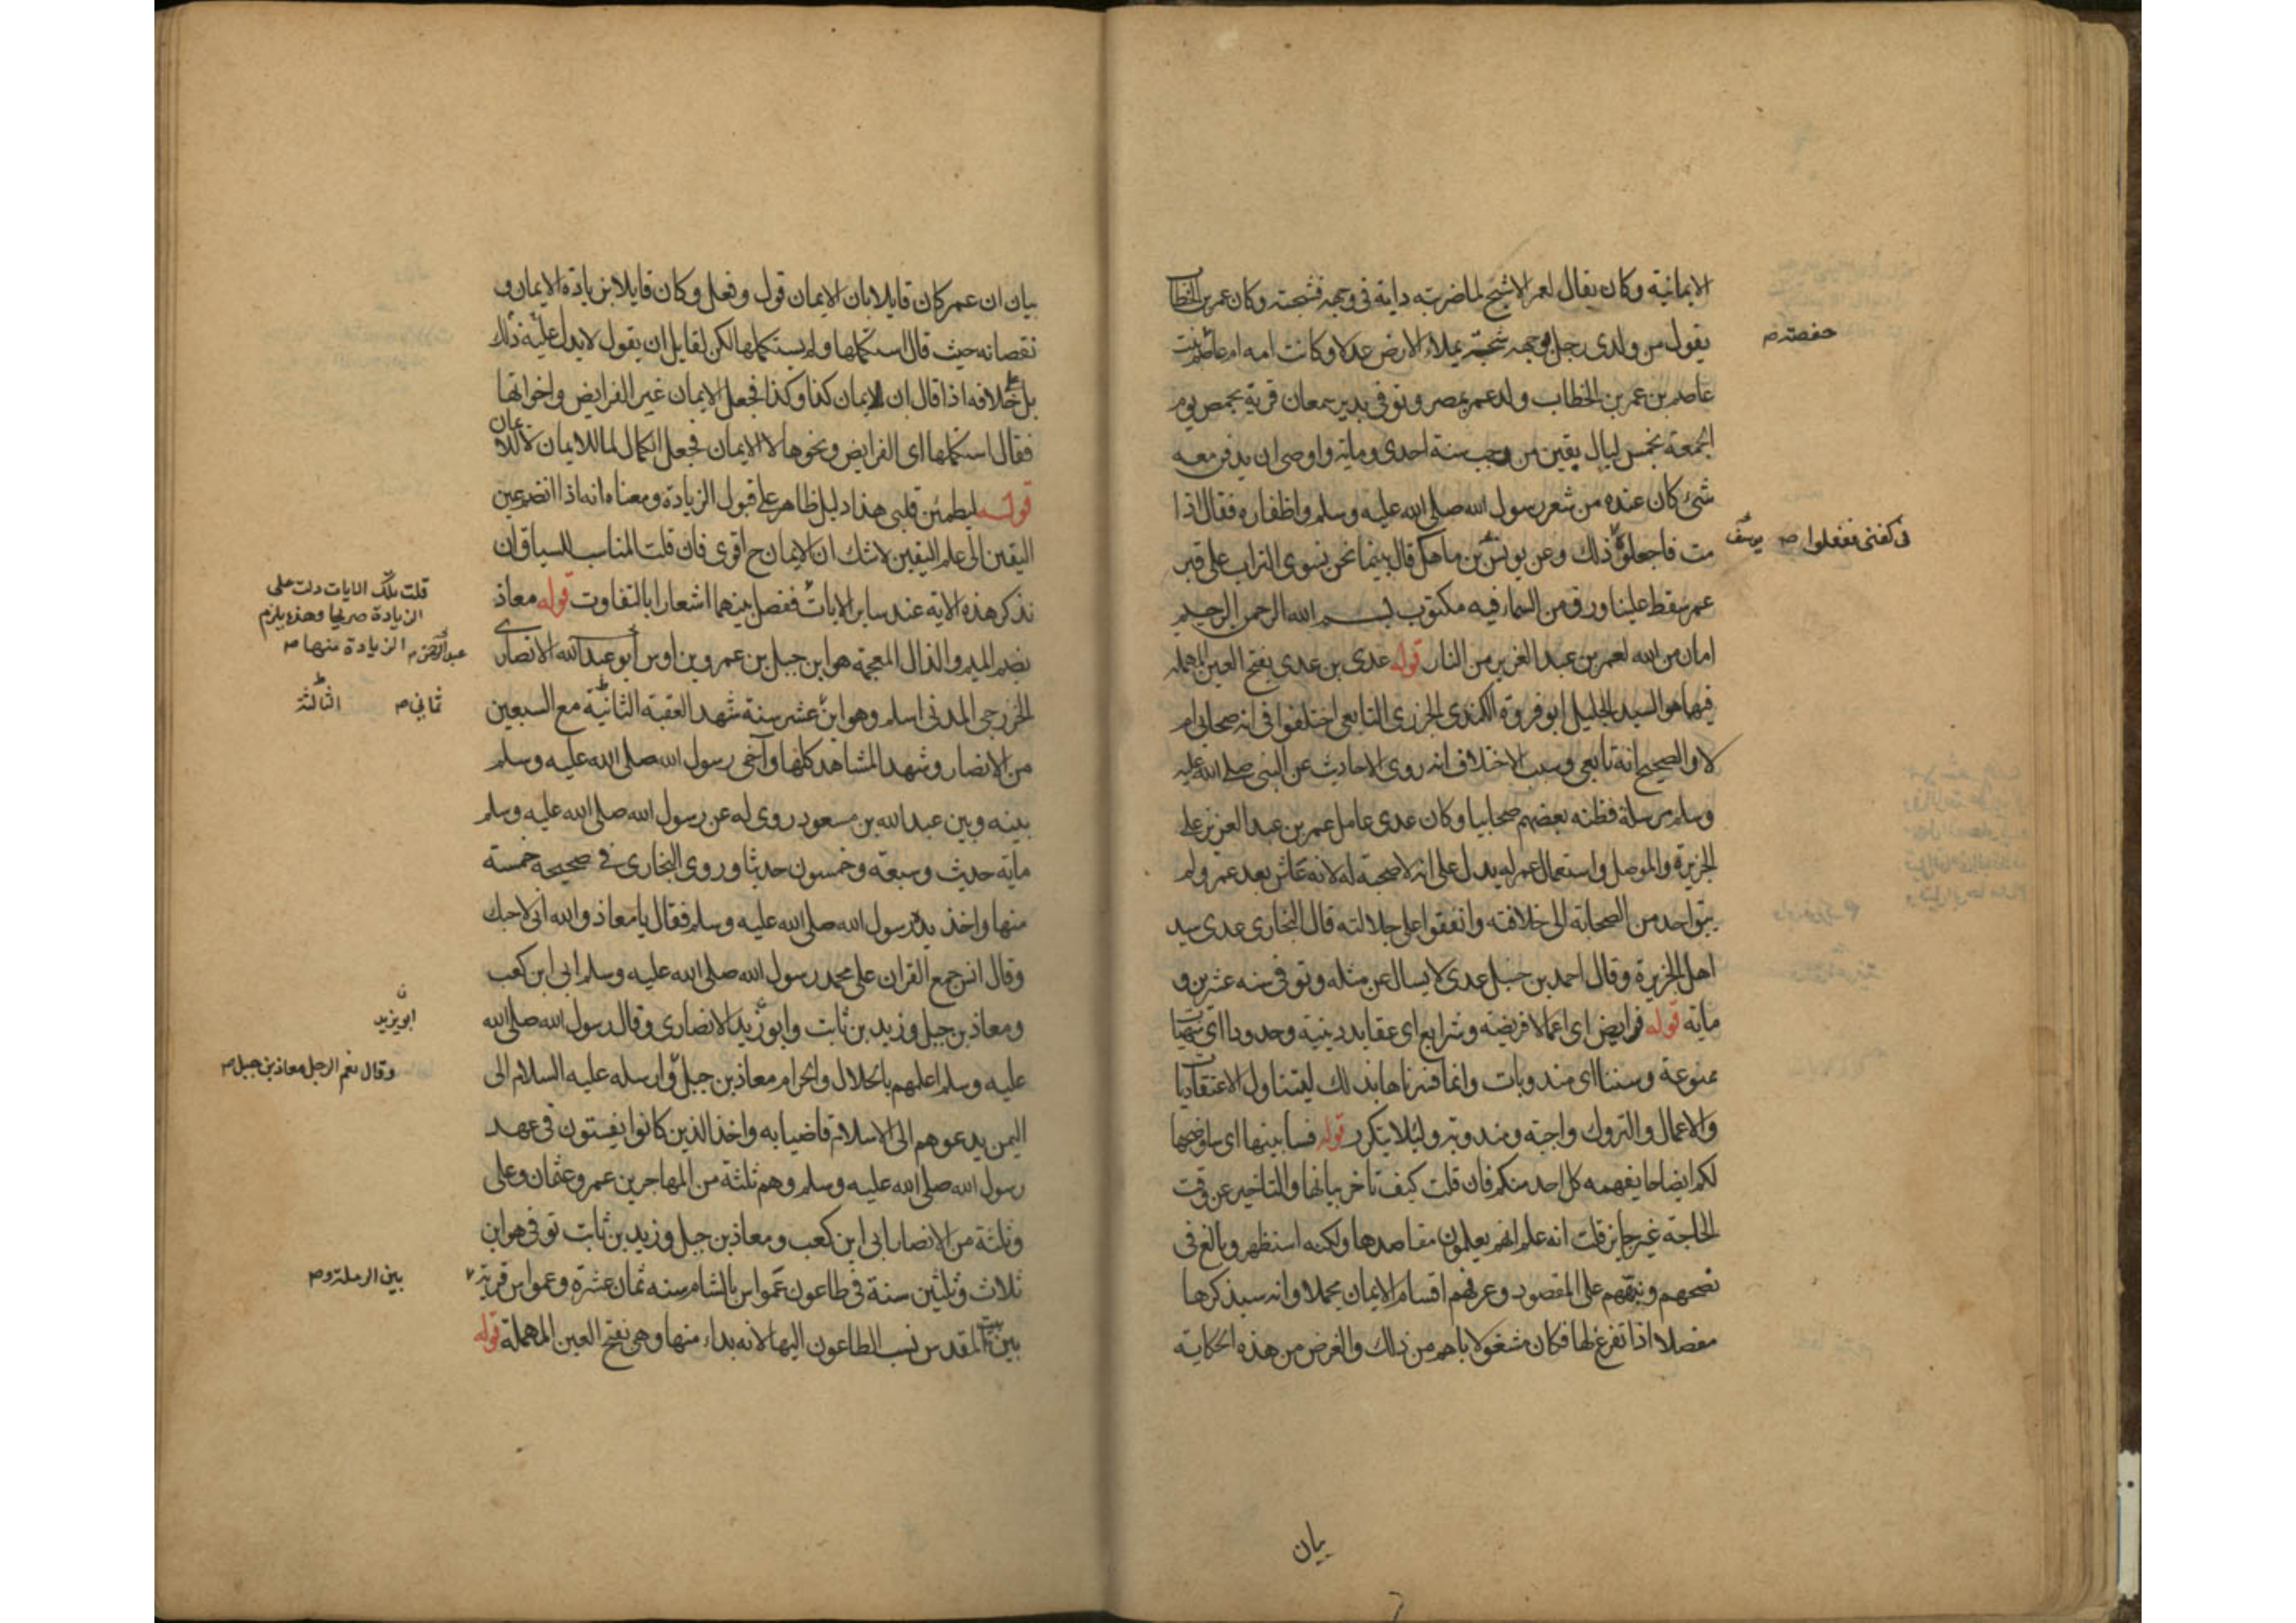 الايمانية وكان يقال لعمر الاشج لما ضربته دابة في وجهه فشجته وكان عمر بن الخطاب
يقول من ولدي رجل بوجهه شجة يملاء الارض عدلا وكانت امه ام عاصم بنت
حفصة صح
عاصم بن عمر بن الخطاب ولد عمر بمصر وتوفي بدير سمعان قرية بحمص يوم
الجمعة لخمس ليال بقين من رجب سنة احدى وماية واوصى ان يدفن معه
شئ كان عنده من شعر رسول الله صلى الله عليه وسلم واظفاره فقال اذا
مت فاجعلوه ذلك وعن يونس بن ماهك قال بينما نحن نسوي التراب على قبر
في كفني ففعلوا صح يوسف
عمر سقط علينا ورق من السماء فيه مكتوب بسم الله الرحمن الرحيم
امان من الله لعمر بن عبد العزيز من النار قوله عدي بن عدي بفتح العين المهملة
فيهما هو السيد الجليل ابو فروة الكندي الجزري التابعي اختلفوا في انه صحابي ام
لا والصحيح انه تابعي وسبب الاختلاف انه روى الاحاديث عن النبي صلى الله عليه
وسلم مرسلة فظنه بعضهم صحابيا وكان عدي عامل عمر بن عبد العزيز على
الجزيرة والموصل واستعمال عمر له يدل على انه لا صحبة له لانه عاش بعد عمر ولم
يبق احد من الصحابة الى خلافته واتفقوا على جلالته قال البخاري عدي سيد
اهل الجزيرة وقال احمد بن حنبل عدي لا يسال عن مثله وتوفي سنه عشرين و
ماية قوله فرايض اى اعمالا فريضة وشرايع اى عقايد دينية وحدودا اى منهيات
ممنوعة وسننا اى مندوبات وانما فسرناها بذلك ليتناول الاعتقاديات
والاعمال والتروك واجبة ومندوبة ولئلا يتكرر قوله فسابينها اى ساوضحها
لكم ايضاحا يفهمه كل احد منكم فان قلت كيف تاخر بيانها والتاخير عن وقت
الحاجة غير جايز قلت انه علم انهم يعلمون مقاصدها ولكنه استظهر وبالغ في
نصحهم ونبههم على المقصود وعرفهم اقسام الايمان مجملا وانه سيذكرها
مفصلا اذا تفرغ لها فكان مشغولا باهم من ذلك والغرض من هذه الحكاية
بيان
بيان ان عمر كان قايلا بان الايمان قول وفعل وكان قايلا بزيادة الايمان و
نقصانه حيث قال استكملها ولم يستكملها لكن لقايل ان يقول لا يدل عليه ذلك
بل على خلافه اذا قال ان للايمان كذا وكذا فجعل الايمان غير الفرايض واخواتها
فقال استكملها اى الفرايض ونحوها لا الايمان فجعل الكمال لما للايمان لا للايمان
قوله ليطمئن قلبي هذا دليل ظاهر على قبول الزيادة ومعناه انه اذا انضم عين
اليقين الى علم اليقين لا شك ان الايمان ح اقوى فان قلت المناسب للسياق ان
تذكر هذه الاية عند ساير الايات ففصل بينهما اشعارا بالتفاوت قوله معاذ
قلت تلك الايات دلت على
الزيادة صريحا وهذه يلزم
الزيادة منها صح
بضم الميم والذال المعجمة هو ابن جبل بن عمرو بن اوس ابو عبد الله الانصارى
عبد الرحمن صح
الخزرجي المدني اسلم وهو ابن عشر سنة شهد العقبة الثانية مع السبعين
ثماني صح الثالثة
من الانصار وشهد المشاهد كلها وآخى رسول الله صلى الله عليه وسلم
بينه وبين عبد الله بن مسعود روى له عن رسول الله صلى الله عليه وسلم
ماية حديث وسبعة وخمسون حديثا وروى البخاري في صحيحه خمسة
منها واخذ يده رسول الله صلى الله عليه وسلم فقال يا معاذ والله اني لاحبك
وقال انس جمع القران على محمد رسول الله صلى الله عليه وسلم ابي ابن كعب
ومعاذ بن جبل وزيد بن ثابت وابو زيد الانصاري وقال رسول الله صلى الله
ابو يزيد ن
عليه وسلم اعلمهم بالحلال والحرام معاذ بن جبل وارسله عليه السلام الى
وقال نعم الرجل معاذ بن جبل صح
اليمن يدعوهم الى الاسلام قاضيا به واخذ الذين كانوا يفتون في عهد
رسول الله صلى الله عليه وسلم وهم ثلثة من المهاجرين عمر وعثمان وعلي
وثلثة من الانصار ابي ابن كعب ومعاذ بن جبل وزيد بن ثابت توفي هو ابن
ثلاث وثلثين سنة في طاعون عمواس بالشام سنه ثمان عشرة وعمواس قرية
بين الرملة و صح
بين بيت المقدس نسب الطاعون اليها لانه بداء منها وهي بفتح العين المهملة قوله